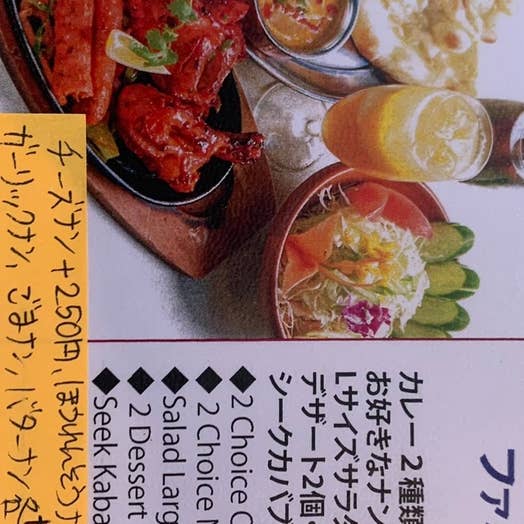 ファ
カレー 2 種類
お好きなナン
Lサイズサラダ
デザート2個
シークカバブ
◆2 Choice C
◆2 Choice N
◆Salad Larg
◆2 Dessert
◆Seek Kaba
チーズナン+250円、ほうれんそうナ
ガーリックナン、ごまナン、バターナン各